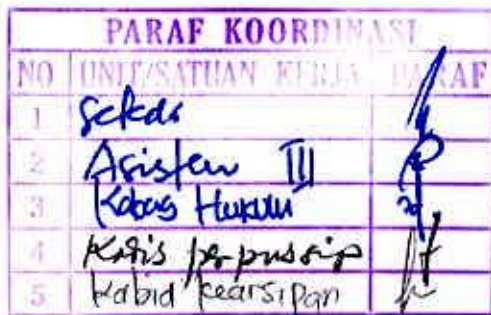 PARAF KOORDINASI
NO UNIT/SATUAN KERJA PARAF
1 Sekda
2 Asisten III
3 Kabag Hukum
4 Kadis perpussip
5 Kabid kearsipan